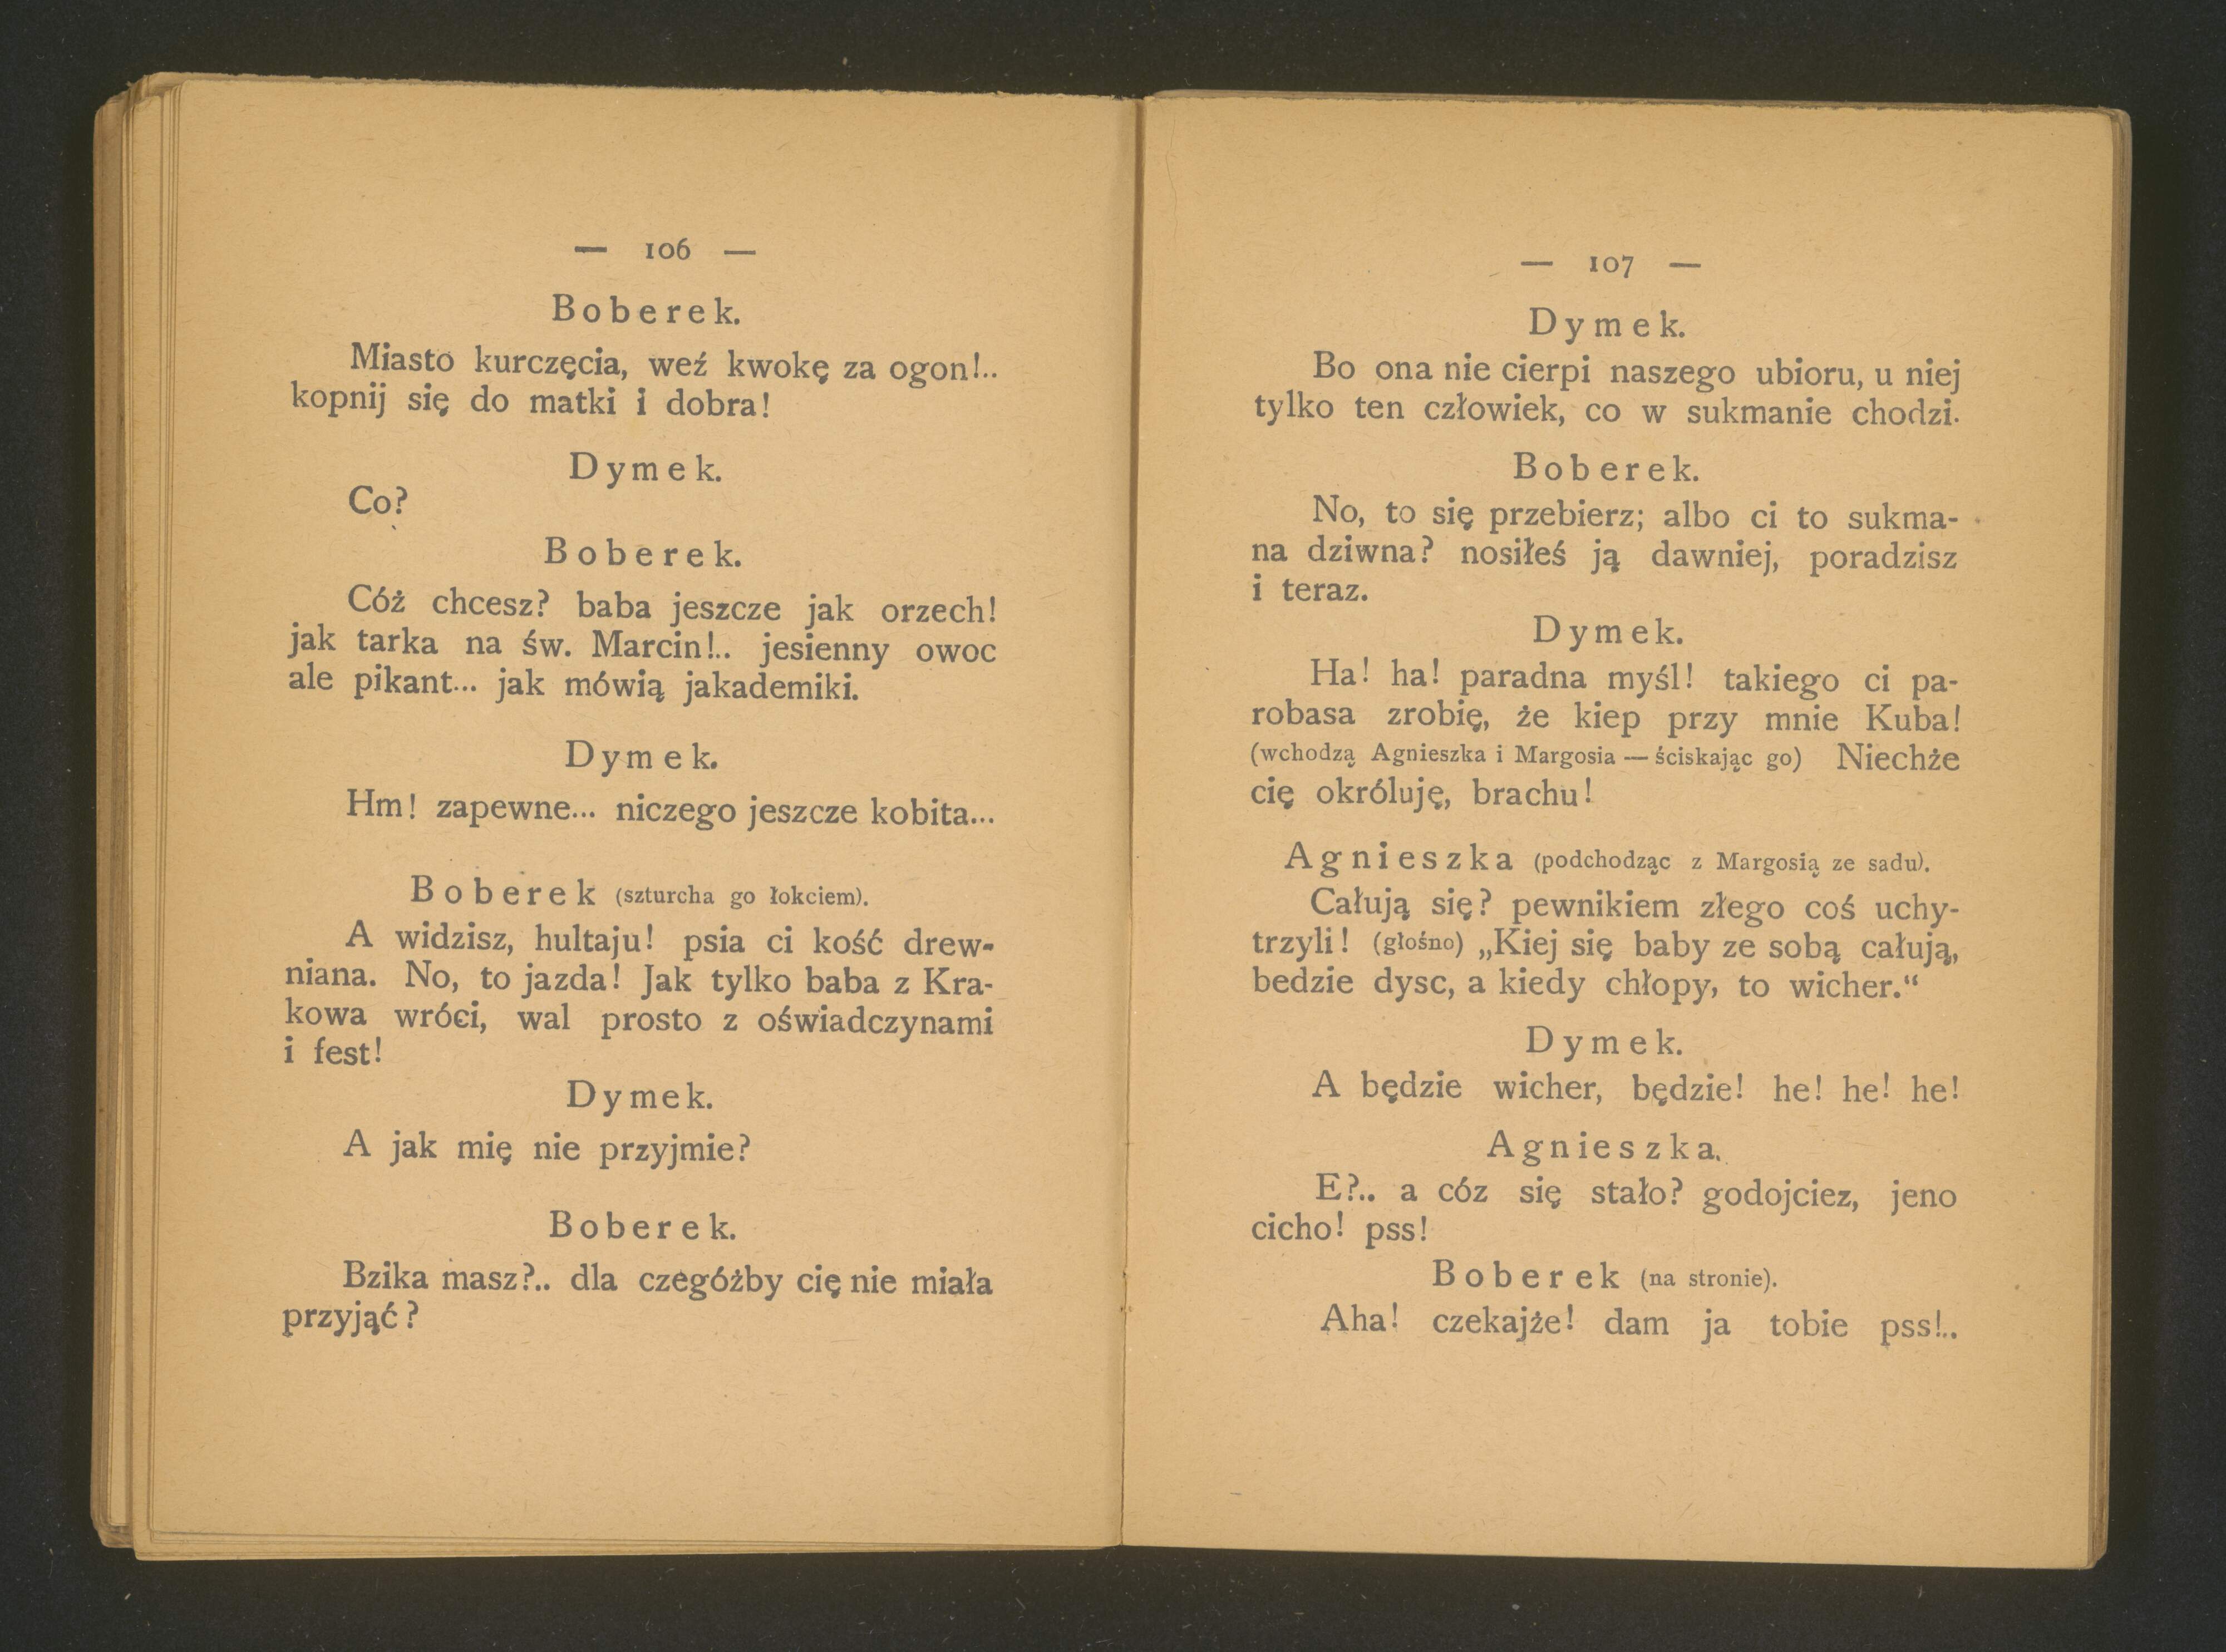 — 106 —
Boberek.
Miasto kurczęcia, weź kwokę za ogon!..
kopnij się do matki i dobra!
Dymek.
Co?
Boberek.
Cóż chcesz? baba jeszcze jak orzech!
jak tarka na św. Marcin!.. jesienny owoc
ale pikant... jak mówią jakademiki.
Dymek.
Hm! zapewne... niczego jeszcze kobita...
Boberek (szturcha go łokciem).
A widzisz, hultaju! psia ci kość drew-
niana. No, to jazda! Jak tylko baba z Kra-
kowa wróci, wal prosto z oświadczynami
i fest!
Dymek.
A jak mię nie przyjmie?
Boberek.
Bzika masz?.. dla czegóżby cię nie miała
przyjąć?
— 107 —
Dymek.
Bo ona nie cierpi naszego ubioru, u niej
tylko ten człowiek, co w sukmanie chodzi.
Boberek.
No, to się przebierz; albo ci to sukma-
na dziwna? nosiłeś ją dawniej, poradzisz
i teraz.
Dymek.
Ha! ha! paradna myśl! takiego ci pa-
robasa zrobię, że kiep przy mnie Kuba!
(wchodzą Agnieszka i Margosia — ściskając go) Niechże
cię okróluję, brachu!
Agnieszka (podchodząc z Margosią ze sadu).
Całują się? pewnikiem złego coś uchy-
trzyli! (głośno) „Kiej się baby ze sobą całują,
bedzie dysc, a kiedy chłopy, to wicher.“
Dymek.
A będzie wicher, będzie! he! he! he!
Agnieszka.
E?.. a cóz się stało? godojciez, jeno
cicho! pss!
Boberek (na stronie).
Aha! czekajże! dam ja tobie pss!..